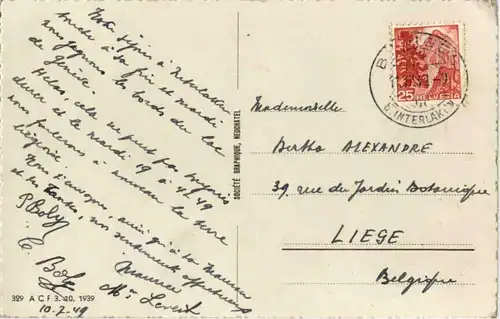 Notre séjour à Interlaken
touche à sa fin et mardi
nous gagnons les bords du lac
de Genève.
Hélas, cela ne peut pas toujours
durer et le mardi 19 à
nous foulerons à nouveau la terre
liégeoise.
ainsi qu'à ta maman
et tes tantes, nos affectueux
P. Boly
Maurice
10-7-49
329 A C F 3. 10. 1939
SOCIÉTÉ GRAPHIQUE, NEUCHATEL
25 HELVETIA
b. INTERLAKEN
Mademoiselle
Bertha ALEXANDRE
39, rue du Jardin Botanique
LIEGE
Belgique